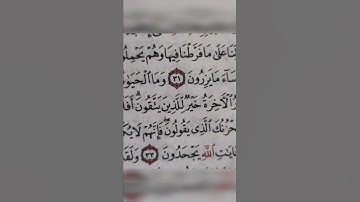 عَلَىٰ مَا فَرَّطْنَا فِيهَا وَهُمْ يَحْمِلُو
سَآءَ مَا يَزِرُونَ ٣١ وَمَا ٱلْحَيَوٰ
ٱلْأٓخِرَةُ خَيْرٌ لِّلَّذِينَ يَتَّقُونَ ۗ أَفَلَا
حْزُنُكَ ٱلَّذِى يَقُولُونَ ۖ فَإِنَّهُمْ لَا يُكَ
بِـَٔايَٰتِ ٱللَّهِ يَجْحَدُونَ ٣٣ وَلَقَ